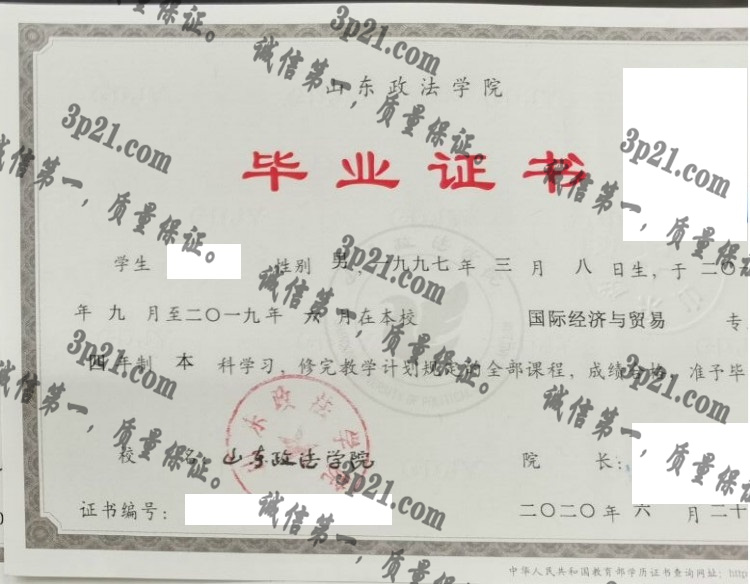 山东政法学院
毕业证书
学生 性别 男，一九九七年 三 月 八 日生，于二〇
年 九 月至二〇一九年 六 月在本校 国际经济与贸易 专
四 年制 本 科学习，修完教学计划规定的全部课程，成绩合格，准予毕
校 名 山东政法学院 院 长：
证书编号： 二〇二〇年 六 月 二十
中华人民共和国教育部学历证书查询网址：http
山东政法学院
3p21.com
诚信第一，质量保证。
3p21.com
诚信第一，质量保证。
3p21.com
诚信第一，质量保证。
3p21.com
诚信第一，质量保证。
3p21.com
诚信第一，质量保证。
3p21.com
诚信第一，质量保证。
3p21.com
诚信第一，质量保证。